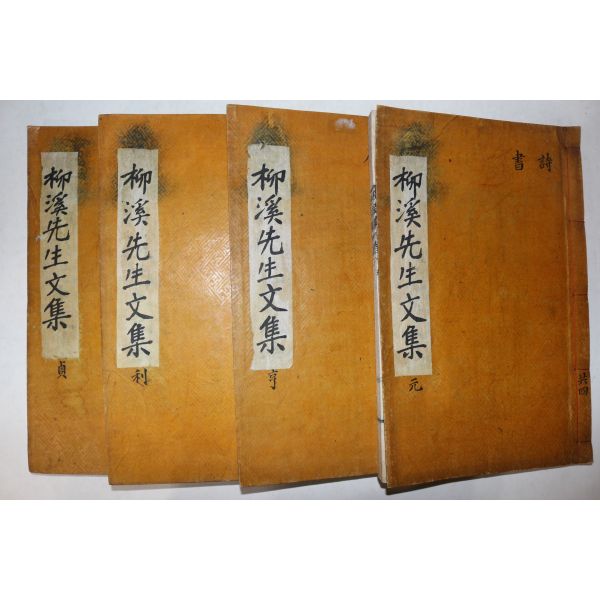 詩
書
柳溪先生文集
元
共四
柳溪先生文集
亨
柳溪先生文集
利
柳溪先生文集
貞